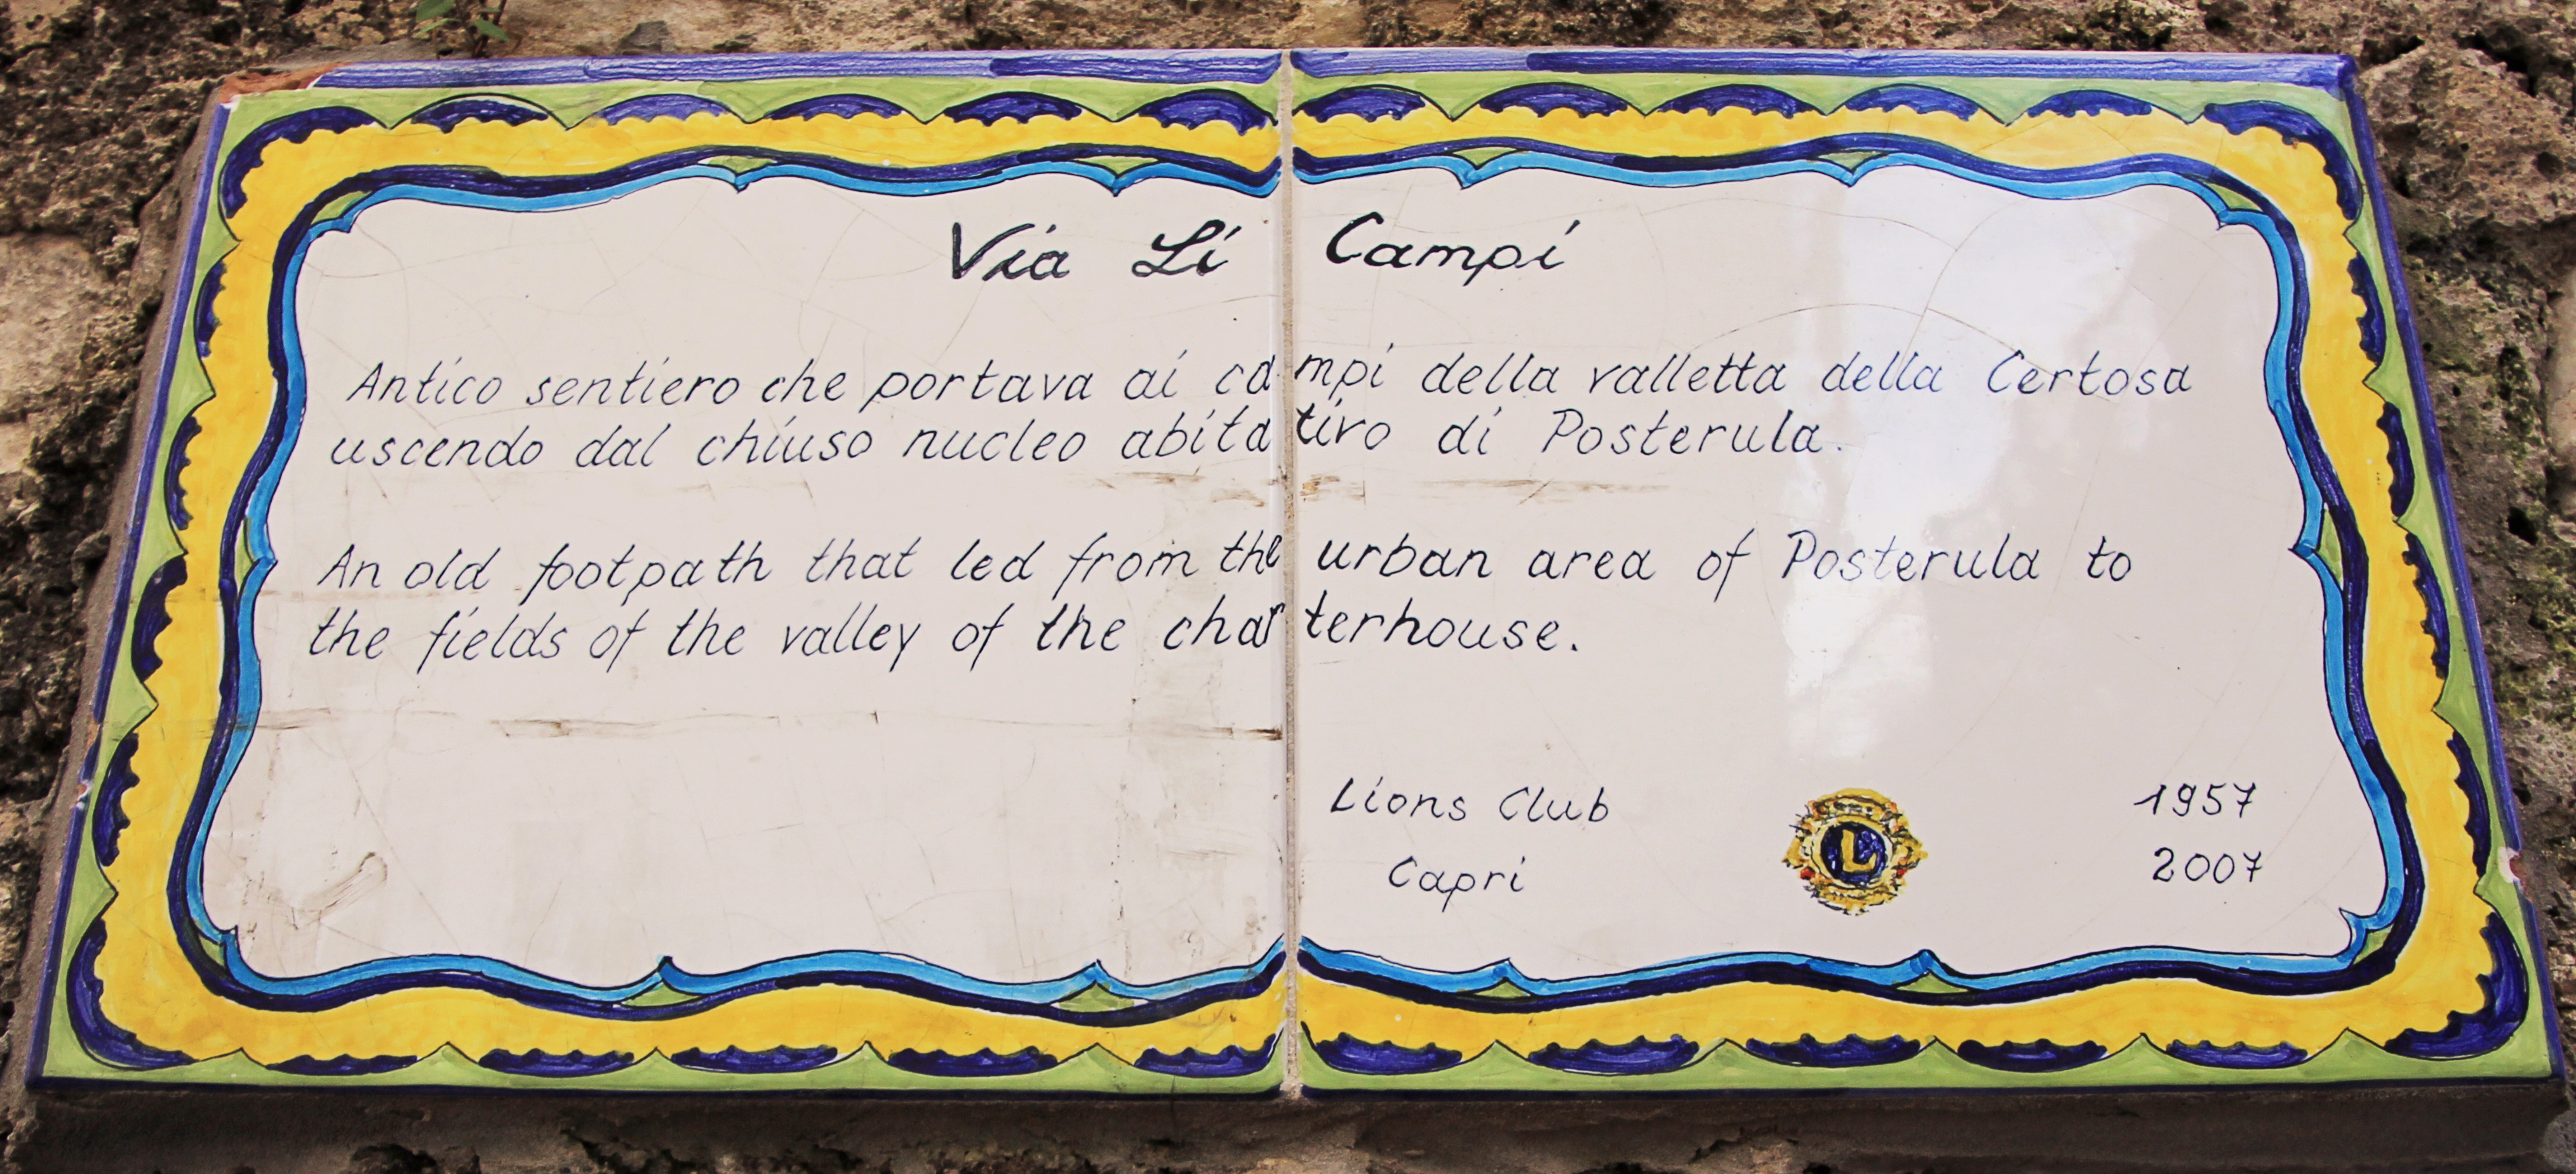 Via Li Campi
Antico sentiero che portava ai campi della valletta della Certosa
uscendo dal chiuso nucleo abitativo di Posterula.
An old footpath that led from the urban area of Posterula to
the fields of the valley of the charterhouse.
Lions Club
Capri
L
1957
2007